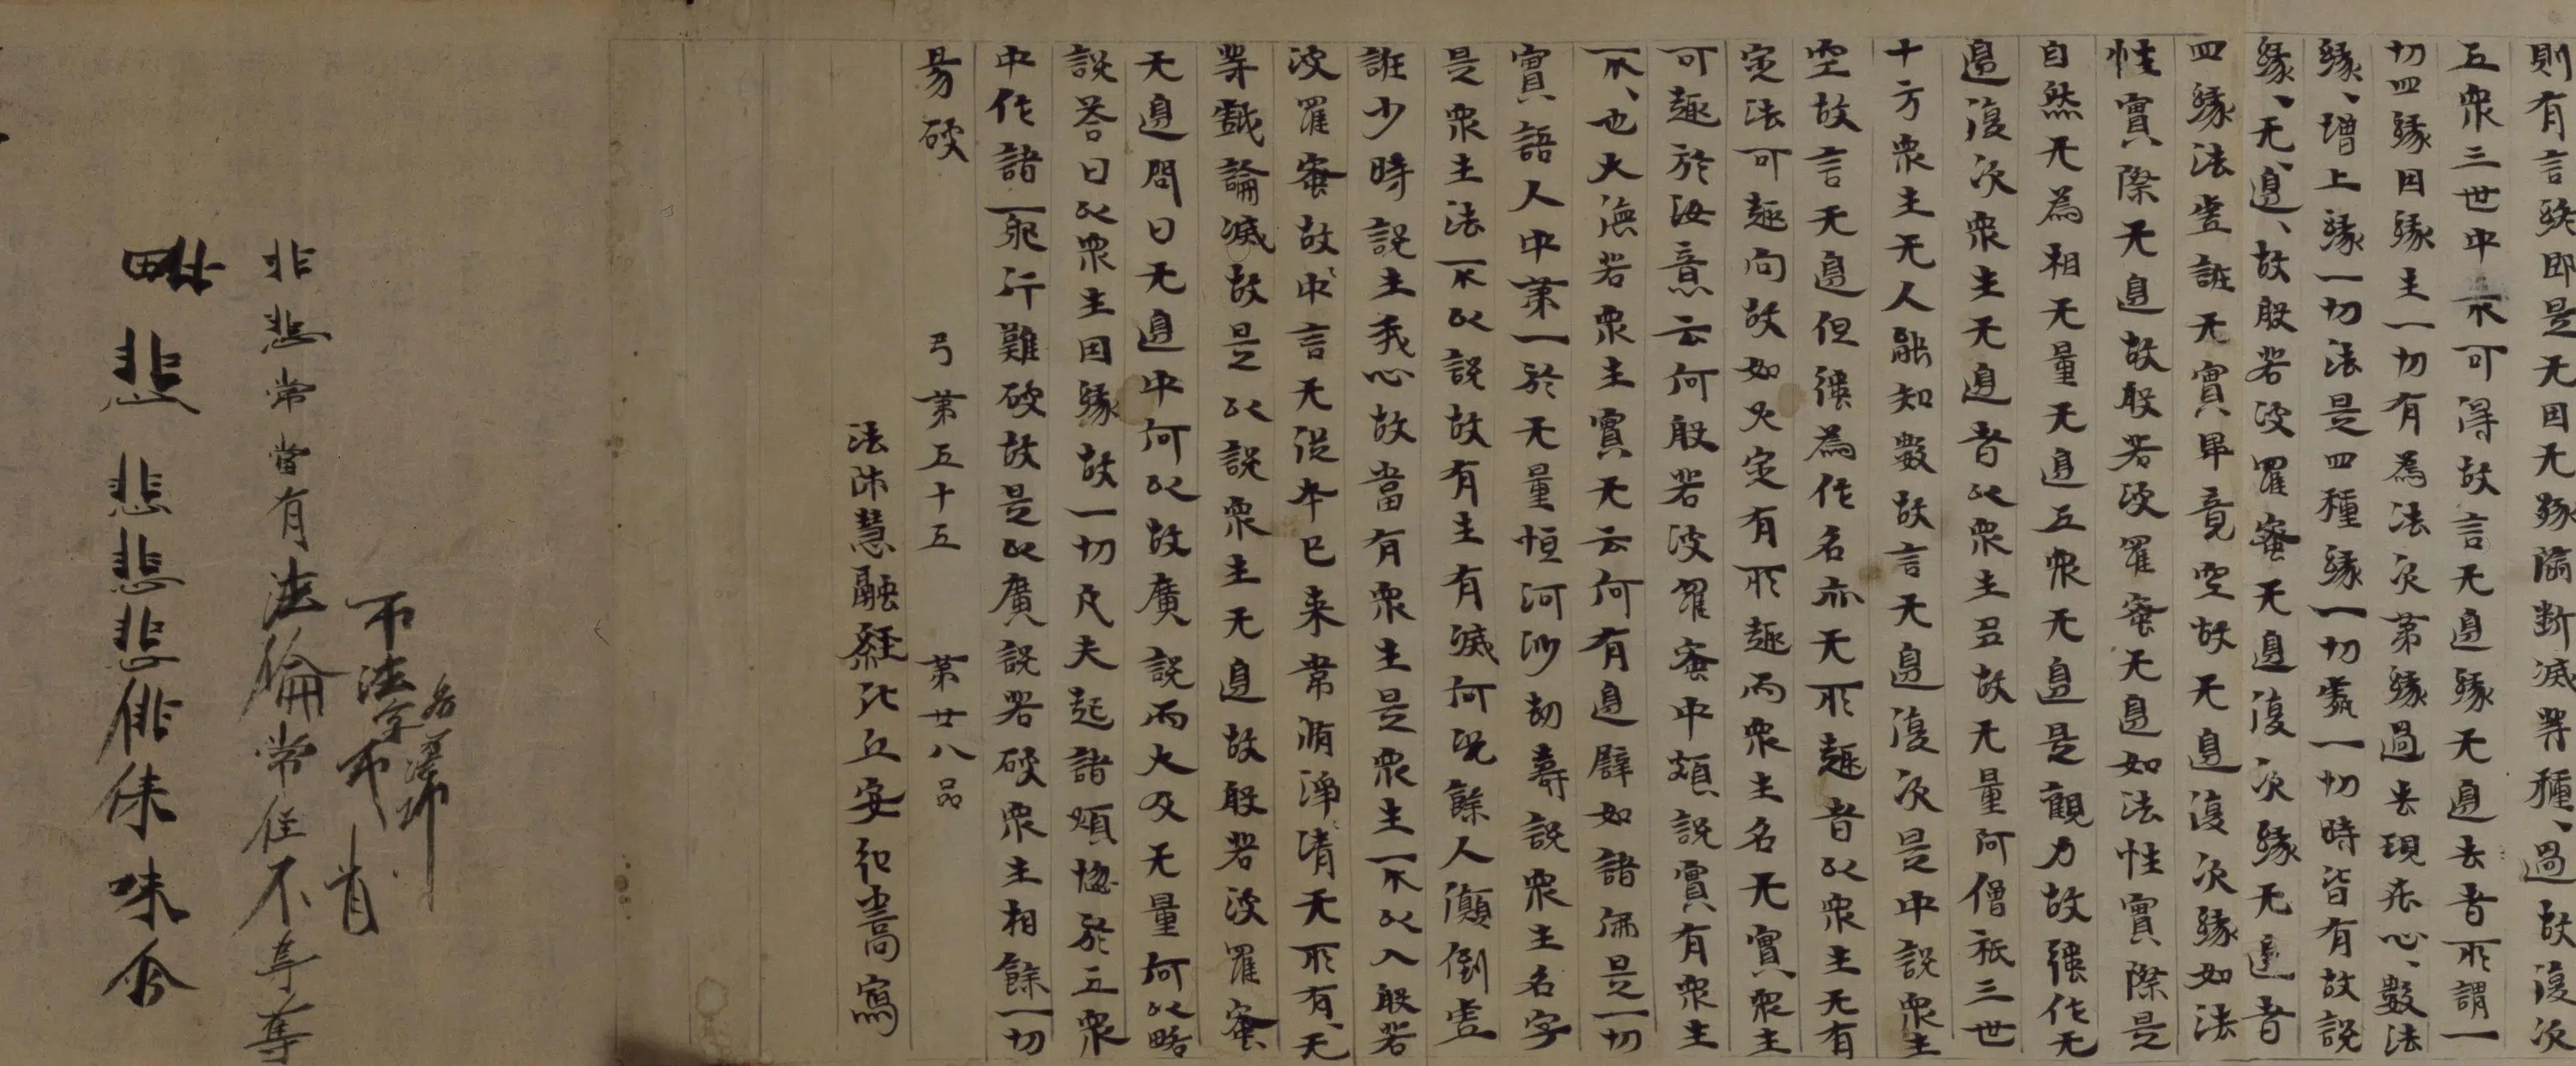 則有言終即是无因无緣墮斷滅等種、過故復次
五眾三世中不可得故言无邊緣无邊去者所謂一
切四緣因緣生一切有為法次第緣過去現在心、數法
緣、增上緣一切法是四種緣一切處一切時皆有故說
緣、无、邊、故般若波羅蜜无邊復次緣无邊者
四緣法虛誑无實畢竟空故无邊復次緣如法
性實際无邊故般若波羅蜜无邊如法性實際是
自然无為相无量无邊五眾无邊是觀力故強作无
邊復次眾生无邊者以眾生多故无量阿僧祇三世
十方眾生无人能知數故言无邊復次是中說眾生
空故言无邊但強為作名亦无所趣者以眾生无有
定法可趣向故如火定有所趣而眾生名无實眾生
可趣於汝意云何般若波羅蜜中頗說實有眾生
不、也大德若眾生實无云何有邊譬如諸佛是一切
實語人中第一於无量恒河沙劫壽說眾生名字
是眾生法不以說故有生有滅何況餘人顛倒虛
誑少時說生我心故當有眾生是眾生不以入般若
波羅蜜故中言无從本已來常清淨清无所有、无
等戲論滅故是以說眾生无邊故般若波羅蜜
无邊問曰无邊中何以故廣說而大及无量何以略
說荅曰以眾生因緣故故一切凡夫起諸煩惱於五眾
中作諸邪行難破故是以廣說若破眾生相餘一切
易破
弓第五十五 第廿八品
法師慧融經比丘安弘嵩寫
不法字布肖
名
非悲常當有法倫常住不
悲悲悲悲俳俫味